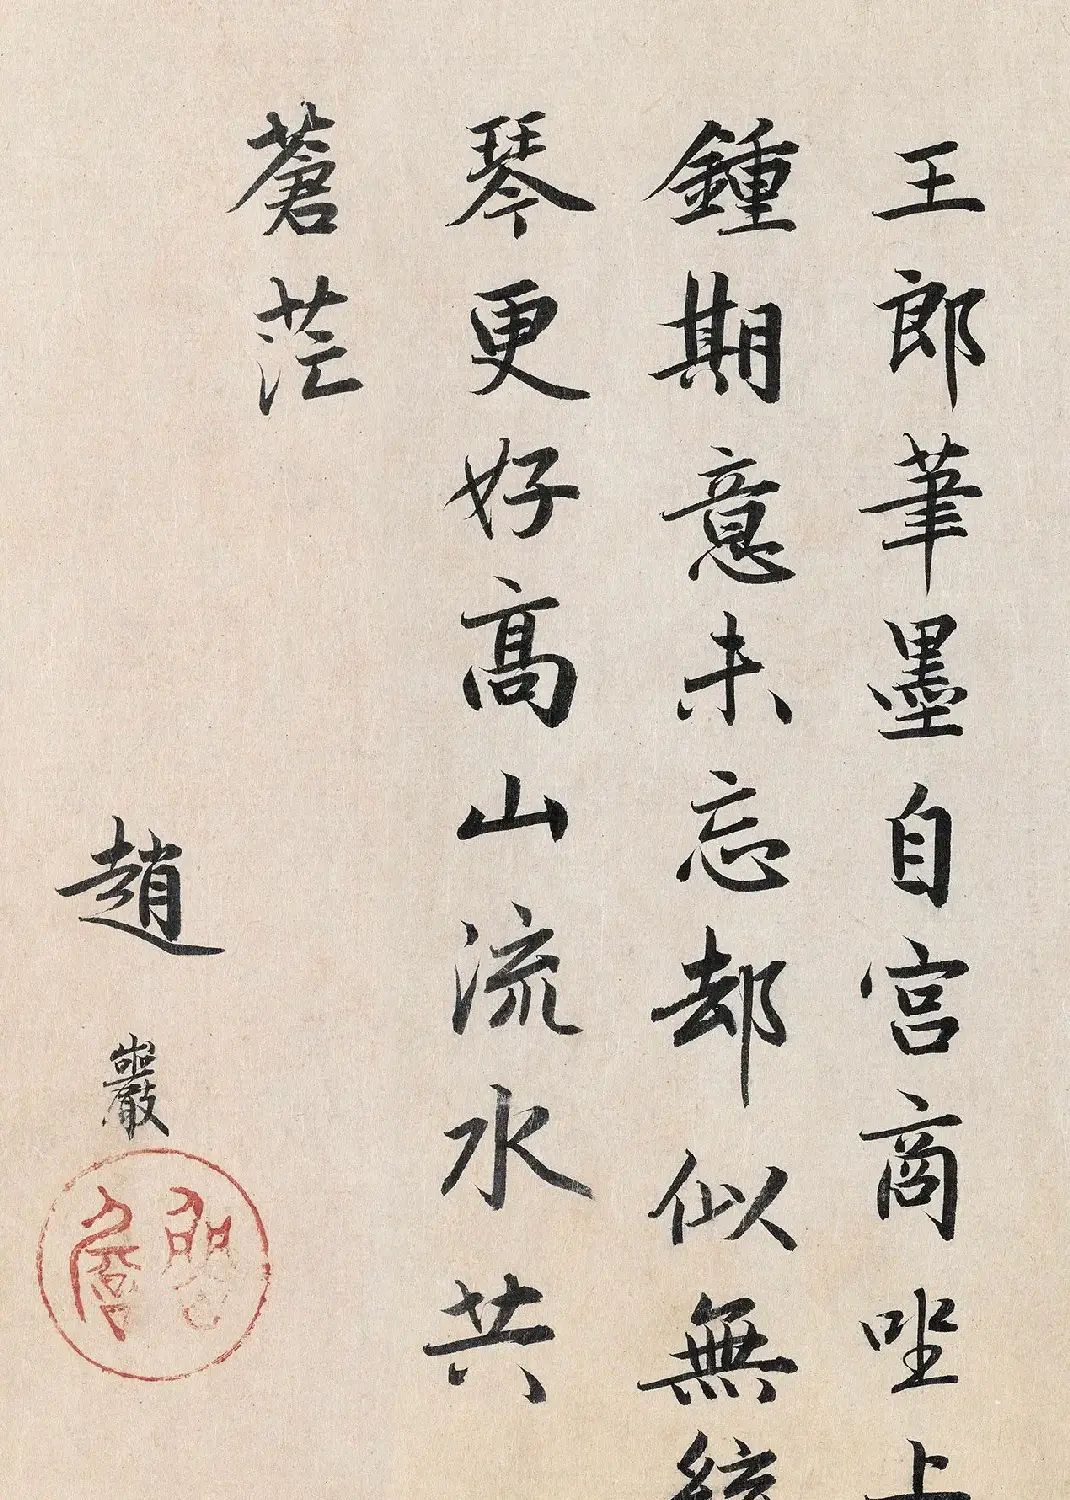 王郎筆墨自宮商坐上
鍾期意未忘却似無絃
琴更好高山流水共
蒼茫
趙巖